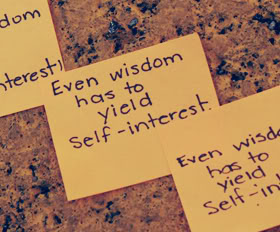 dom
nterest!
Even wisdom
has to
yield
self-interest.
Even wisdo
has to
yield
self-in